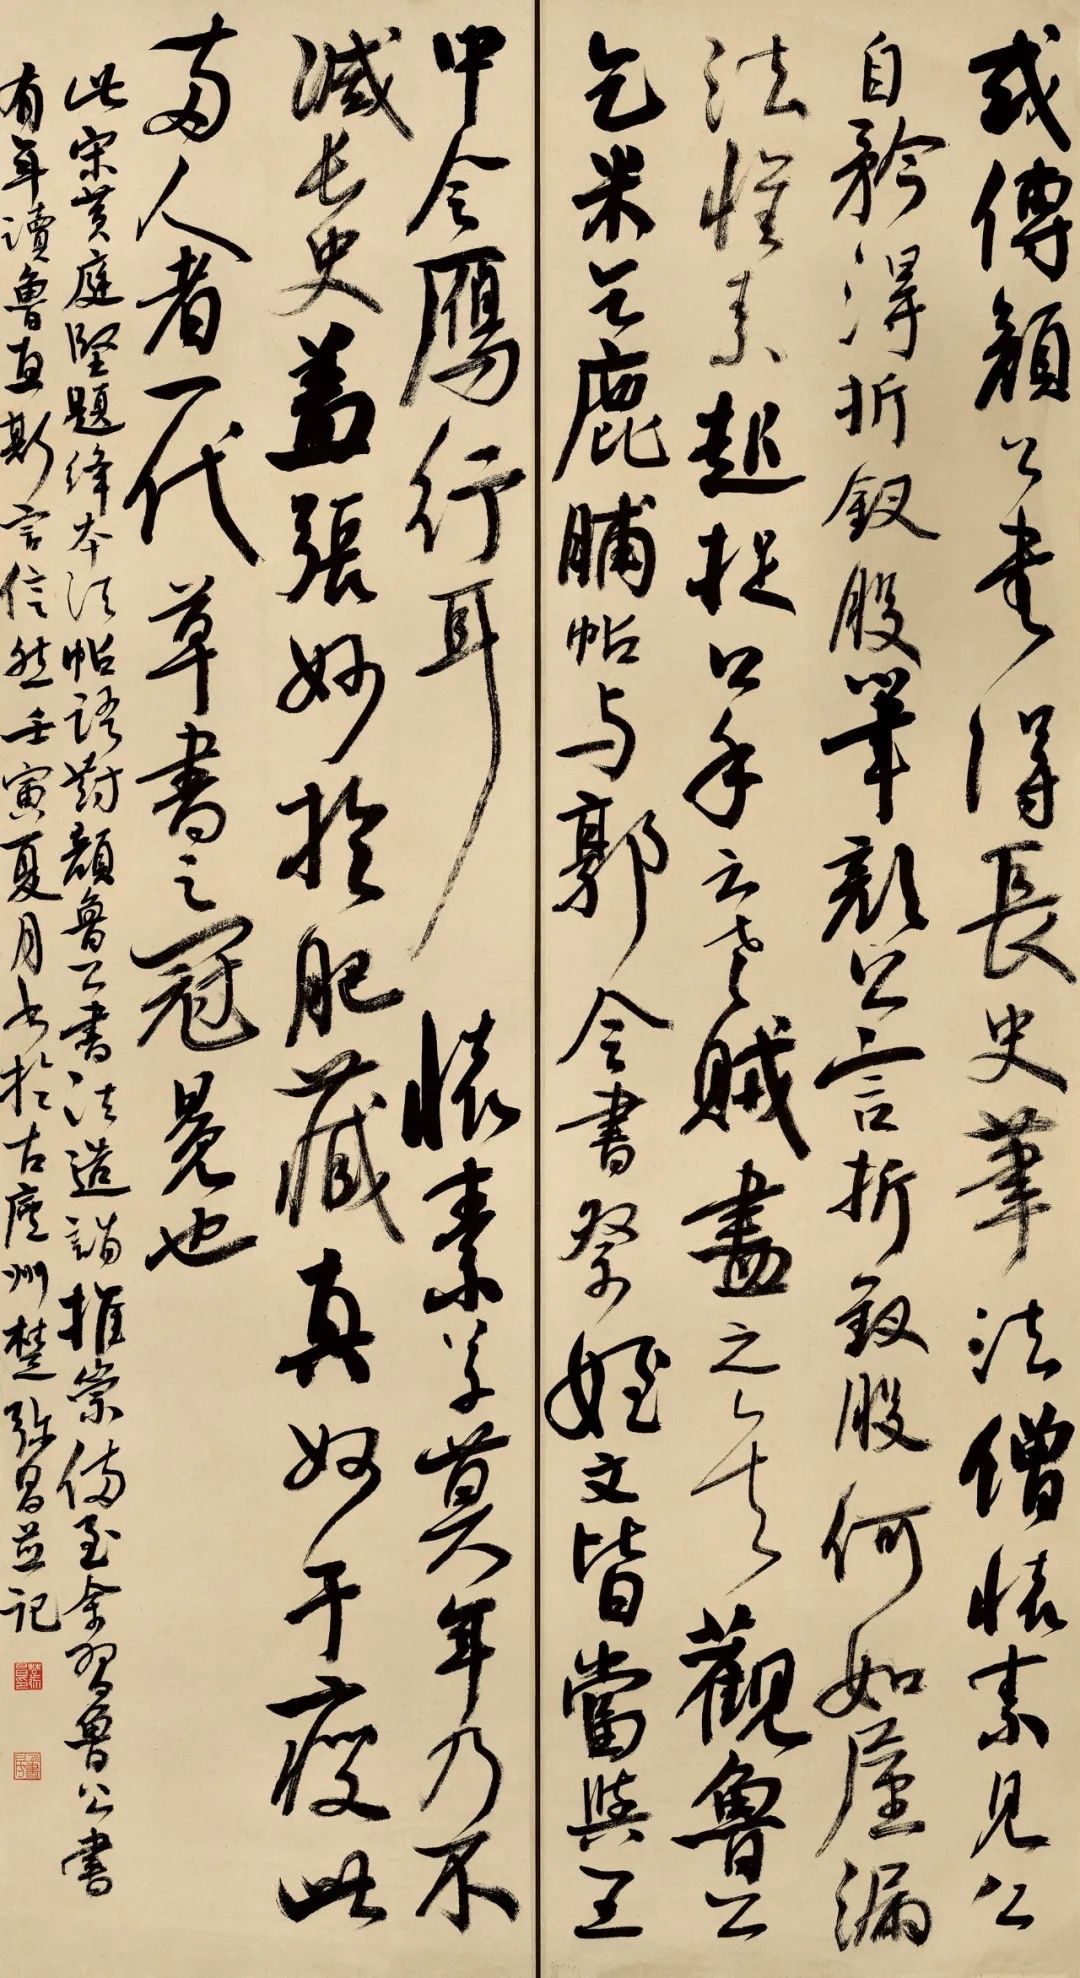 或傳顏公書得長史筆法僧懷素見公
自矜得折釵股筆顏公言折釵股何如屋漏
法懷素起捉公手云老賊盡之矣觀魯公
乞米乞鹿脯帖与郭令書祭姪文皆當與王
中令鴈行耳 懷素草莫年乃不
減長史盖張妙於肥藏真妙于瘦此
两人者一代草書之冠冕也
此宋黄庭堅題絳本法帖語對顏魯公書法造詣推崇備至余習魯公書
有年讀魯直斯言信然壬寅夏月书於古廬州楚弥昌並記